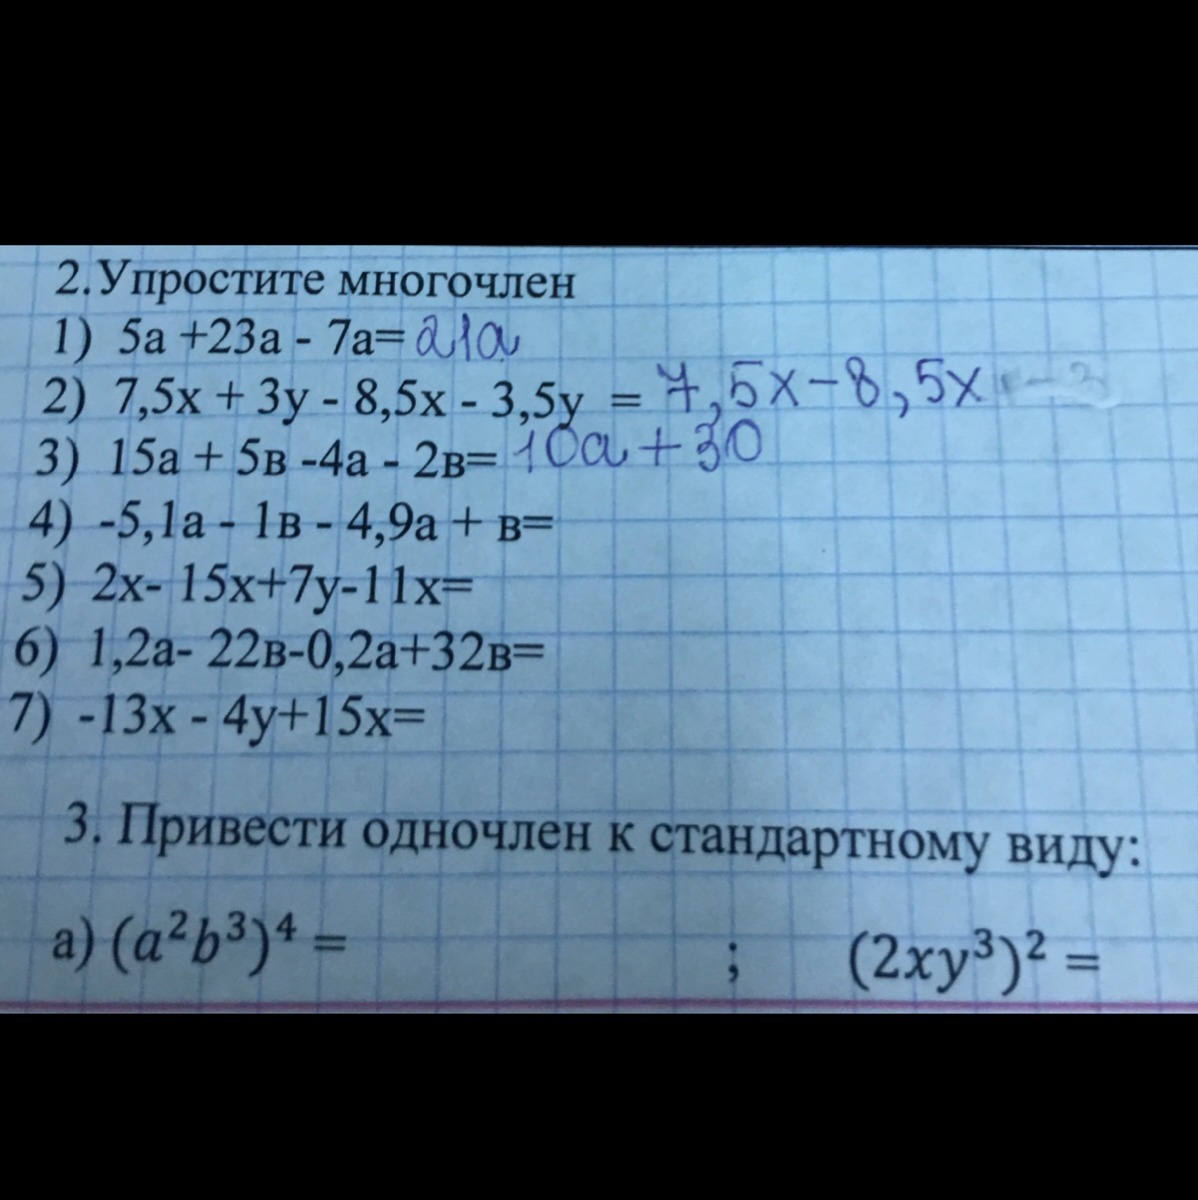 2.Упростите многочлен
1) 5а +23а - 7а= 21а
2) 7,5х + 3у - 8,5х - 3,5у = 7,5х-8,5х
3) 15а + 5в -4а - 2в= 10а+30
4) -5,1а - 1в - 4,9а + в=
5) 2х- 15х+7у-11х=
6) 1,2а- 22в-0,2а+32в=
7) -13х - 4у+15х=
3. Привести одночлен к стандартному виду:
а) (a²b³)⁴ = ; (2xy³)² =